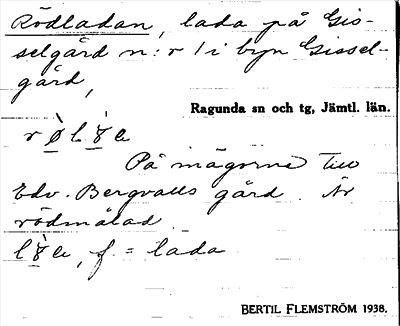 Rödladan, lada på Gis-
selgård n:r 1 i byn Gissel-
gård,
Ragunda sn och tg, Jämtl. län.
På mägorne till
Edv. Bergvalls gård. Är
rödmålad.
f. = lada
BERTIL FLEMSTRÖM 1938.